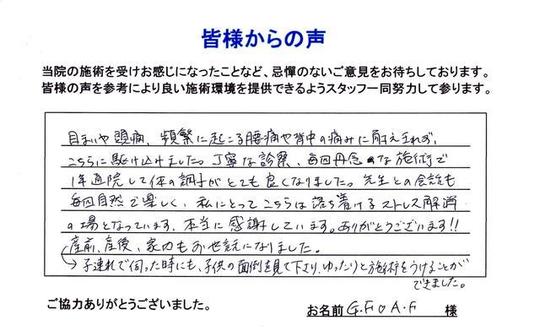 皆様からの声
当院の施術を受けお感じになったことなど、忌憚のないご意見をお待ちしております。
皆様の声を参考により良い施術環境を提供できるようスタッフ一同努力して参ります。
目まいや頭痛、頻繁に起こる腰痛や背中の痛みに耐えきれず、
こちらに駆け付けました。丁寧な診察、毎回丹念な施術で
1年通院して体の調子がとても良くなりました。先生との会話も
毎回自然で楽しく、私にとってこちらは落ち着けるストレス解消
の場となっています。本当に感謝しています。ありがとうございます!!
産前、産後、家内もお世話になりました。
→子連れで伺った時にも、子供の面倒を見て下さり、ゆったりと施術をうけることが
できました。
ご協力ありがとうございました。
お名前 G.F & A.F 様